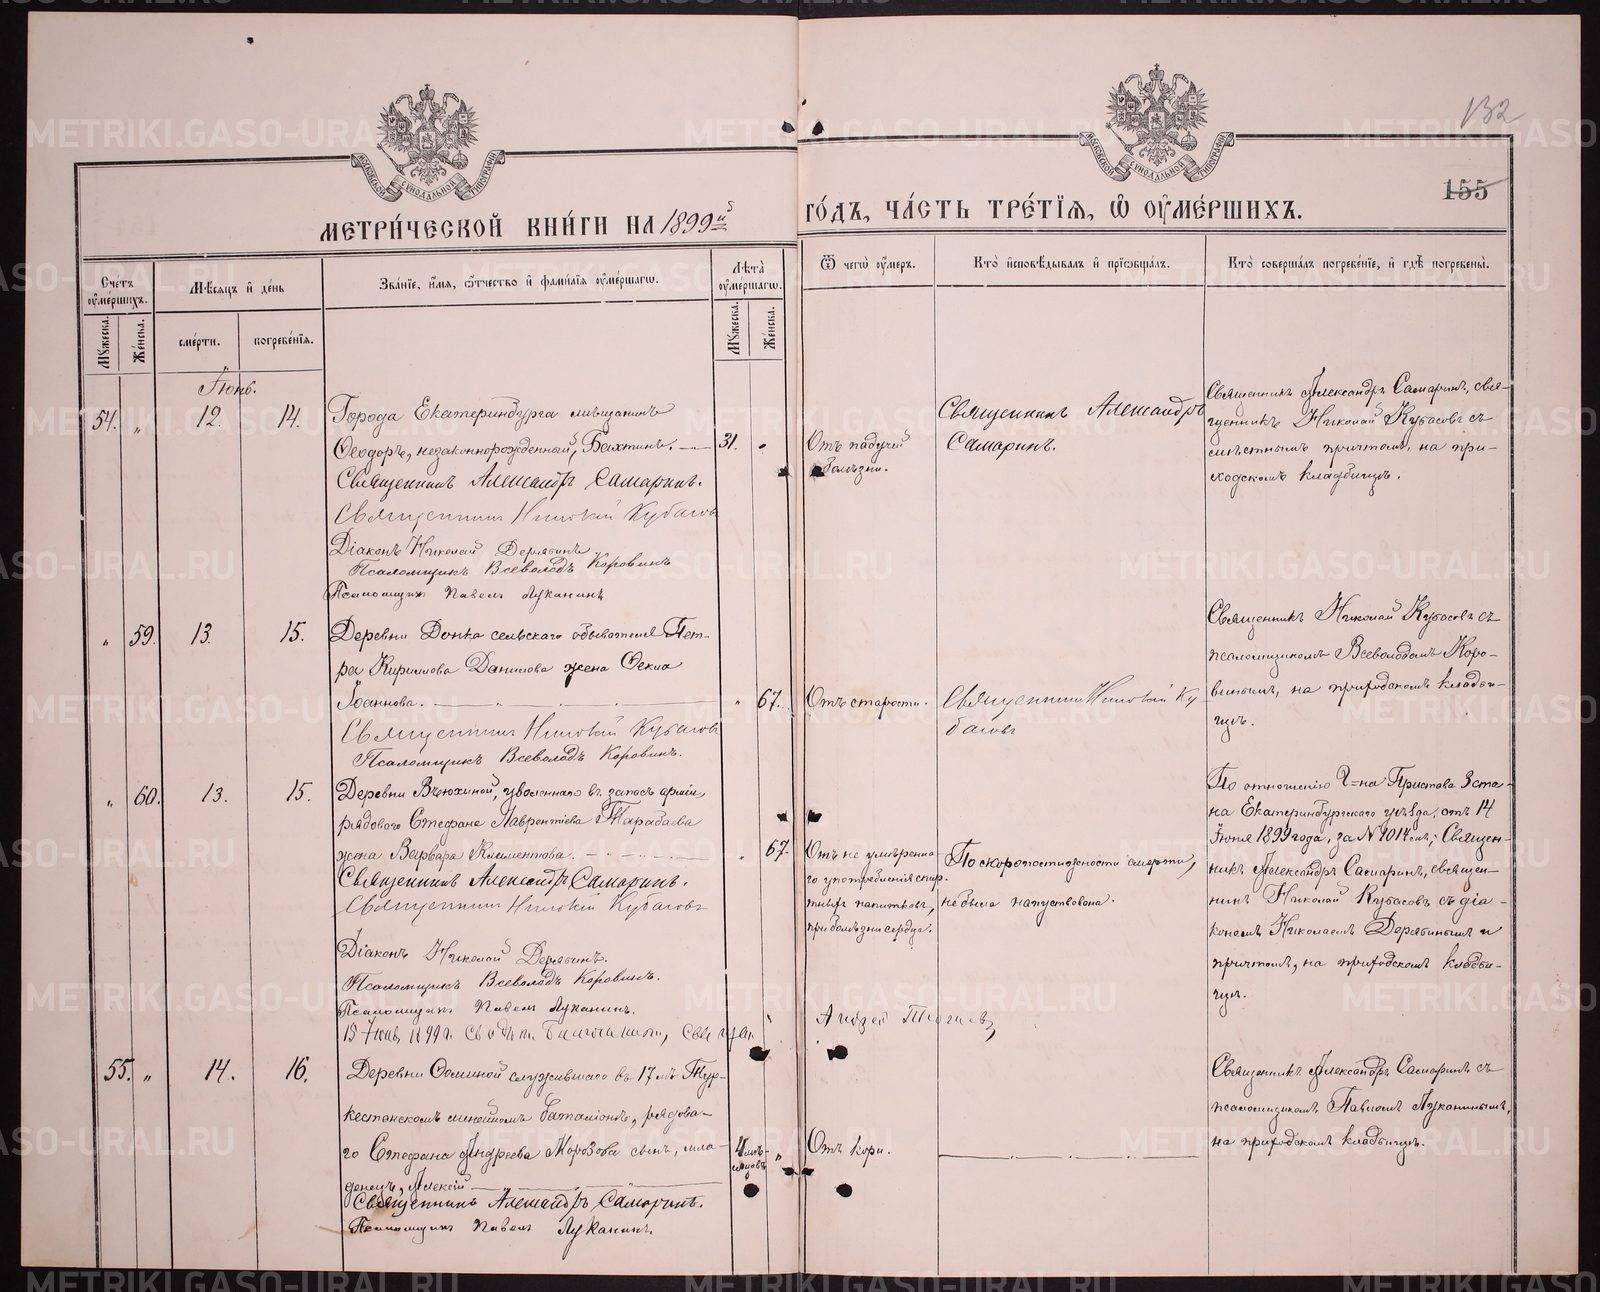 132
155
МЕТРИ́ЧЕСКОЙ КНИ́ГИ НА 1899й
ГО́ДЪ, ЧА́СТЬ ТРЕ́ТЇѦ, Ѡ ОУМЕ́РШИХЪ.
Сче́тъ оумершихъ.
Мѣсяцъ и де́нь
Зва́нїе, и́мя, ѻтчество и фами́лїя оуме́ршагѡ.
Лѣта̀ оуме́ршагѡ.
Ѿ чегѡ̀ оу́меръ.
Кто̀ исповѣ́дывалъ и прїѡбща́лъ.
Кто̀ соверша́лъ погребе́нїе, и гдѣ̀ погребены̀.
Мꙋжеска.
Же́нска.
сме́рти.
погребе́нїя.
Мꙋжеска.
Же́нска.
Іюнь.
54. „ 12. 14.
Города Екатеринбурга мѣщанинъ
Ѳеодоръ, незаконнорожденный, Бахтинъ. — 31. „
Священникъ Александръ Самаринъ.
Священникъ Николай Кубасовъ
Діаконъ Николай Дерябинъ
Псаломщикъ Всеволодъ Коровинъ
Псаломщикъ Павелъ Луканинъ
Отъ падучей
болѣзни.
Священникъ Александръ
Самаринъ.
Священникъ Александръ Самаринъ, свя-
щенникъ Николай Кубасовъ съ
мѣстнымъ причтомъ, на при-
ходскомъ кладбищѣ.
„ 59. 13. 15.
Деревни Донка сельскаго обывателя Пет-
ра Кириллова Данилова жена Ѳекла
Іоаннова. — „ 67.
Священникъ Николай Кубасовъ
Псаломщикъ Всеволодъ Коровинъ.
Отъ старости.
Священникъ Николай Ку
басовъ
Священникъ Николай Кубасовъ съ
псаломщикомъ Всеволодомъ Коро-
винымъ, на приходскомъ кладби-
щѣ.
„ 60. 13. 15.
Деревни Вьюхиной, уволеннаго въ запасъ арміи
рядового Стефана Лаврентіева Тарабаева
жена Варвара Климентова. — „ 67.
Священникъ Александръ Самаринъ.
Священникъ Николай Кубасовъ
Діаконъ Николай Дерябинъ.
Псаломщикъ Всеволодъ Коровинъ.
Псаломщикъ Павелъ Луканинъ.
15 Іюня 1899 г.
Отъ не умѣренна-
го употребленія спир-
тныхъ напитковъ,
при болѣзни сердца.
По скоропостижности смерти,
не была напутствована.
По отношенію Г=на Пристава 3 ста-
на Екатеринбургского уѣзда, отъ 14
Іюня 1899 года, за № 4014мъ; Священ-
никъ Александръ Самаринъ, священ-
никъ Николай Кубасовъ съ діа-
кономъ Николаемъ Дерябинымъ и
причтомъ, на приходскомъ кладби-
щѣ.
55. „ 14. 16.
Деревни Соминой служившаго въ 17мъ Тур-
кестанскомъ линейномъ баталіонѣ, рядова-
го Стефана Андреева Морозова сынъ, мла-
денецъ, Алексій —
Священникъ Александръ Самаринъ.
Псаломщикъ Павелъ Луканинъ.
Отъ кори.
Священникъ Александръ Самаринъ съ
псаломщикомъ Павломъ Луканинымъ,
на приходскомъ кладбищѣ.